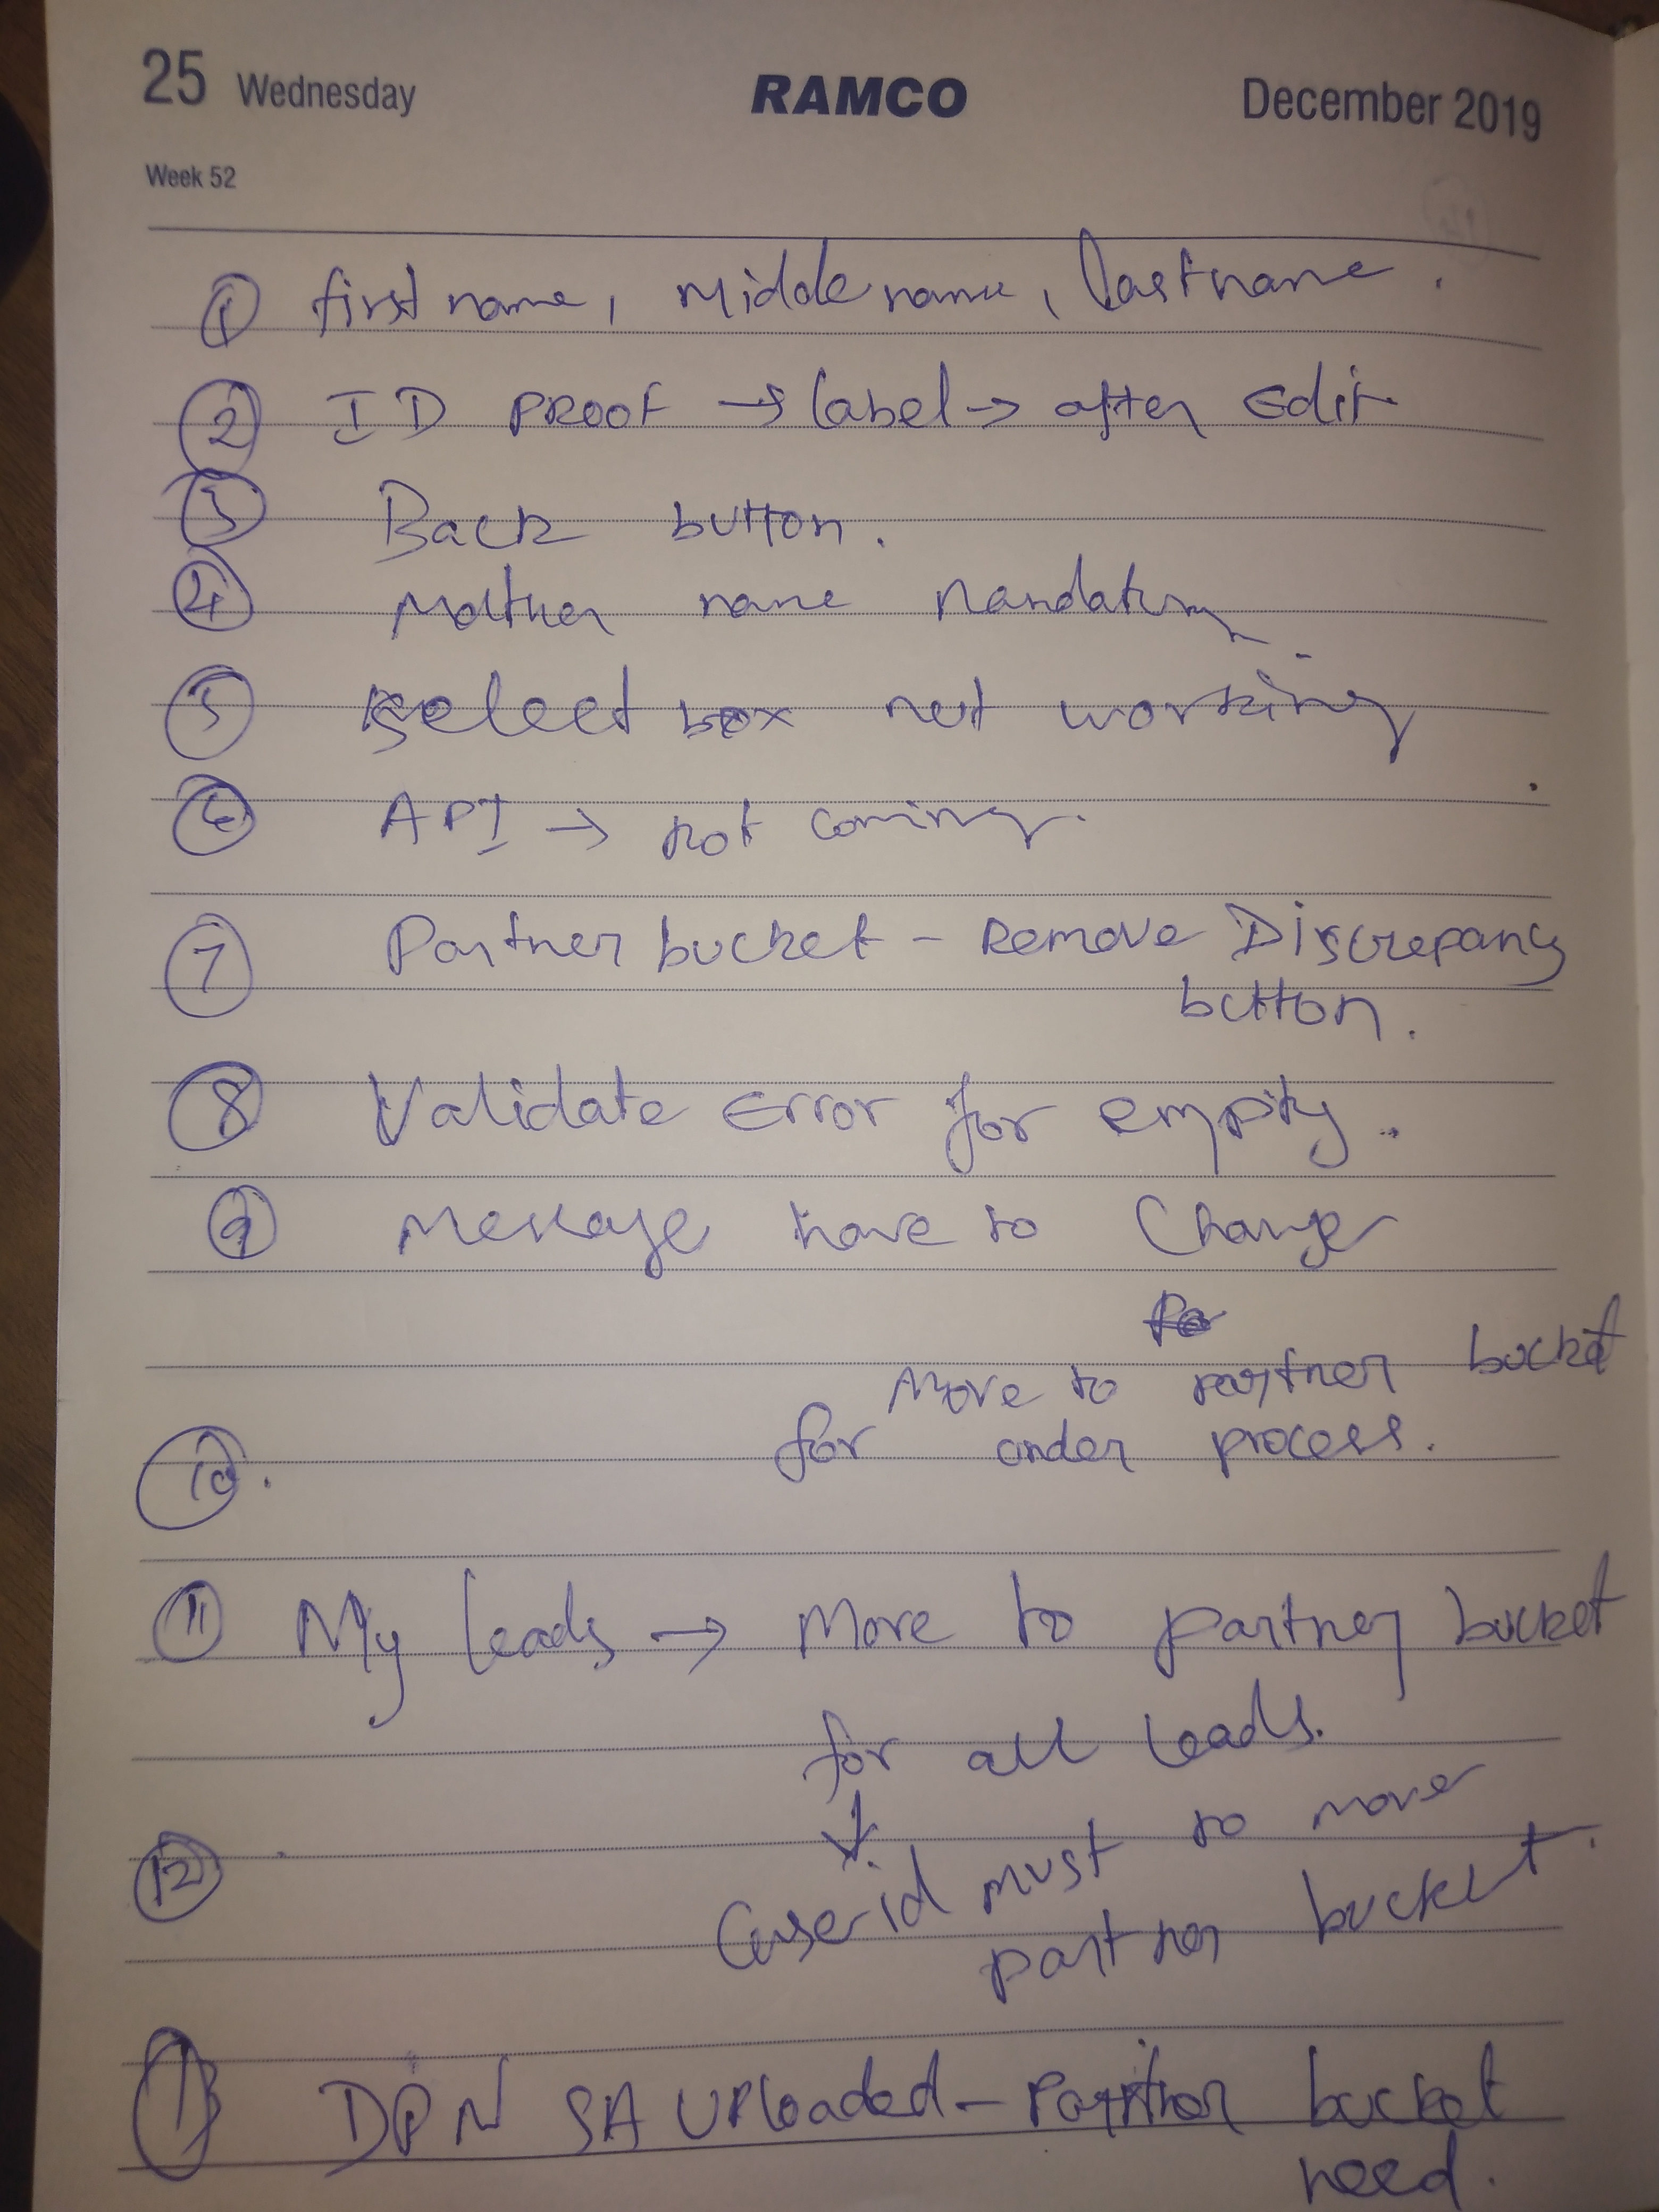 25 Wednesday RAMCO December 2019
Week 52
① first name, Middle name, lastname.
② ID PROOF → label → after Edit
③ Back button.
④ Mother name Mandatory
⑤ select box not working
⑥ API → not coming.
⑦ Partner bucket - Remove Discrepancy
button.
⑧ Validate Error for empty.
⑨ Message have to Change
Move to partner bucket
for under process.
⑩.
⑪ My leads → Move to partner bucket
for all leads.
↓
⑫ Case id must to move
partner bucket.
① DPN SA Uploaded - Partner bucket
need.